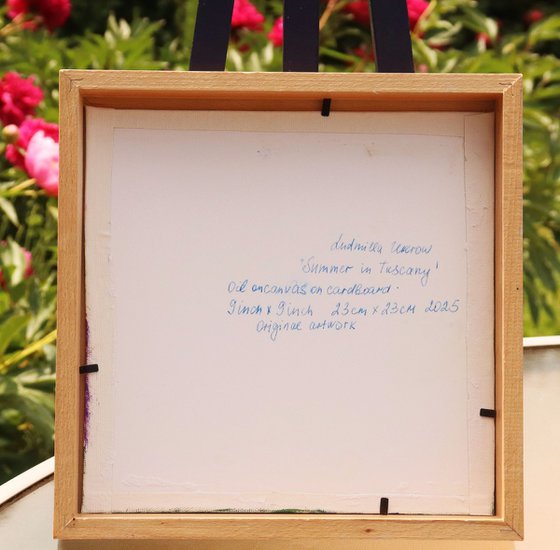 Ludmilla Ukrow
'Summer in Tuscany'
Oil on canvas on cardboard.
9inch x 9inch 23cm x 23cm 2025
Original artwork